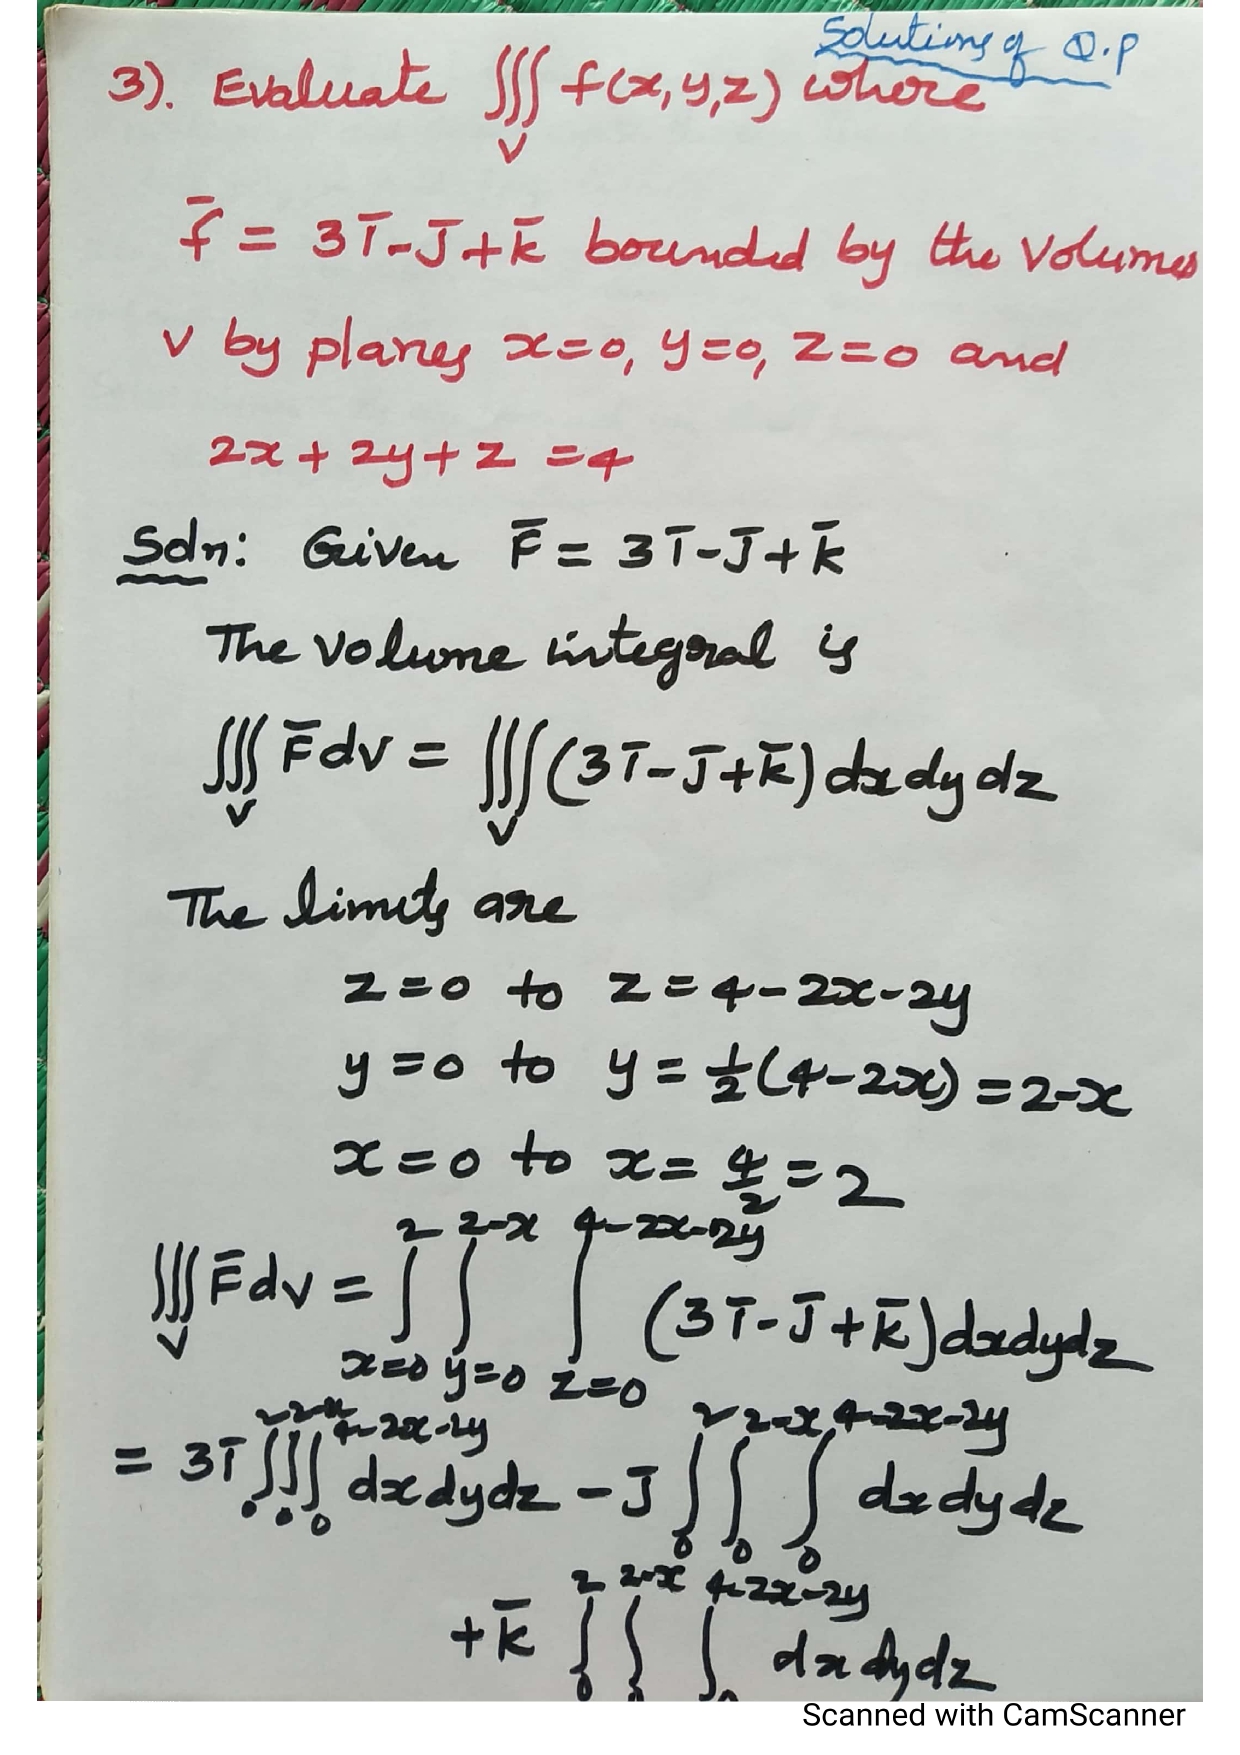 Solutions of Q.P
3). Evaluate ∭_V f(x,y,z) where
f̄ = 3ī-j̄+k̄ bounded by the volumes
v by planes x=0, y=0, z=0 and
2x+2y+z=4
Soln: Given F̄ = 3ī-j̄+k̄
The volume integral is
∭_V F̄dv = ∭_V (3ī-j̄+k̄)dxdydz
The limits are
z=0 to z=4-2x-2y
y=0 to y=½(4-2x)=2-x
x=0 to x=4/2=2
∭_V F̄dv = ∫_{x=0}^{2} ∫_{y=0}^{2-x} ∫_{z=0}^{4-2x-2y} (3ī-j̄+k̄)dxdydz
= 3ī ∫_0^2 ∫_0^{2-x} ∫_0^{4-2x-2y} dxdydz - j̄ ∫_0^2 ∫_0^{2-x} ∫_0^{4-2x-2y} dxdydz
+k̄ ∫_0^2 ∫_0^{2-x} ∫_0^{4-2x-2y} dxdydz
Scanned with CamScanner